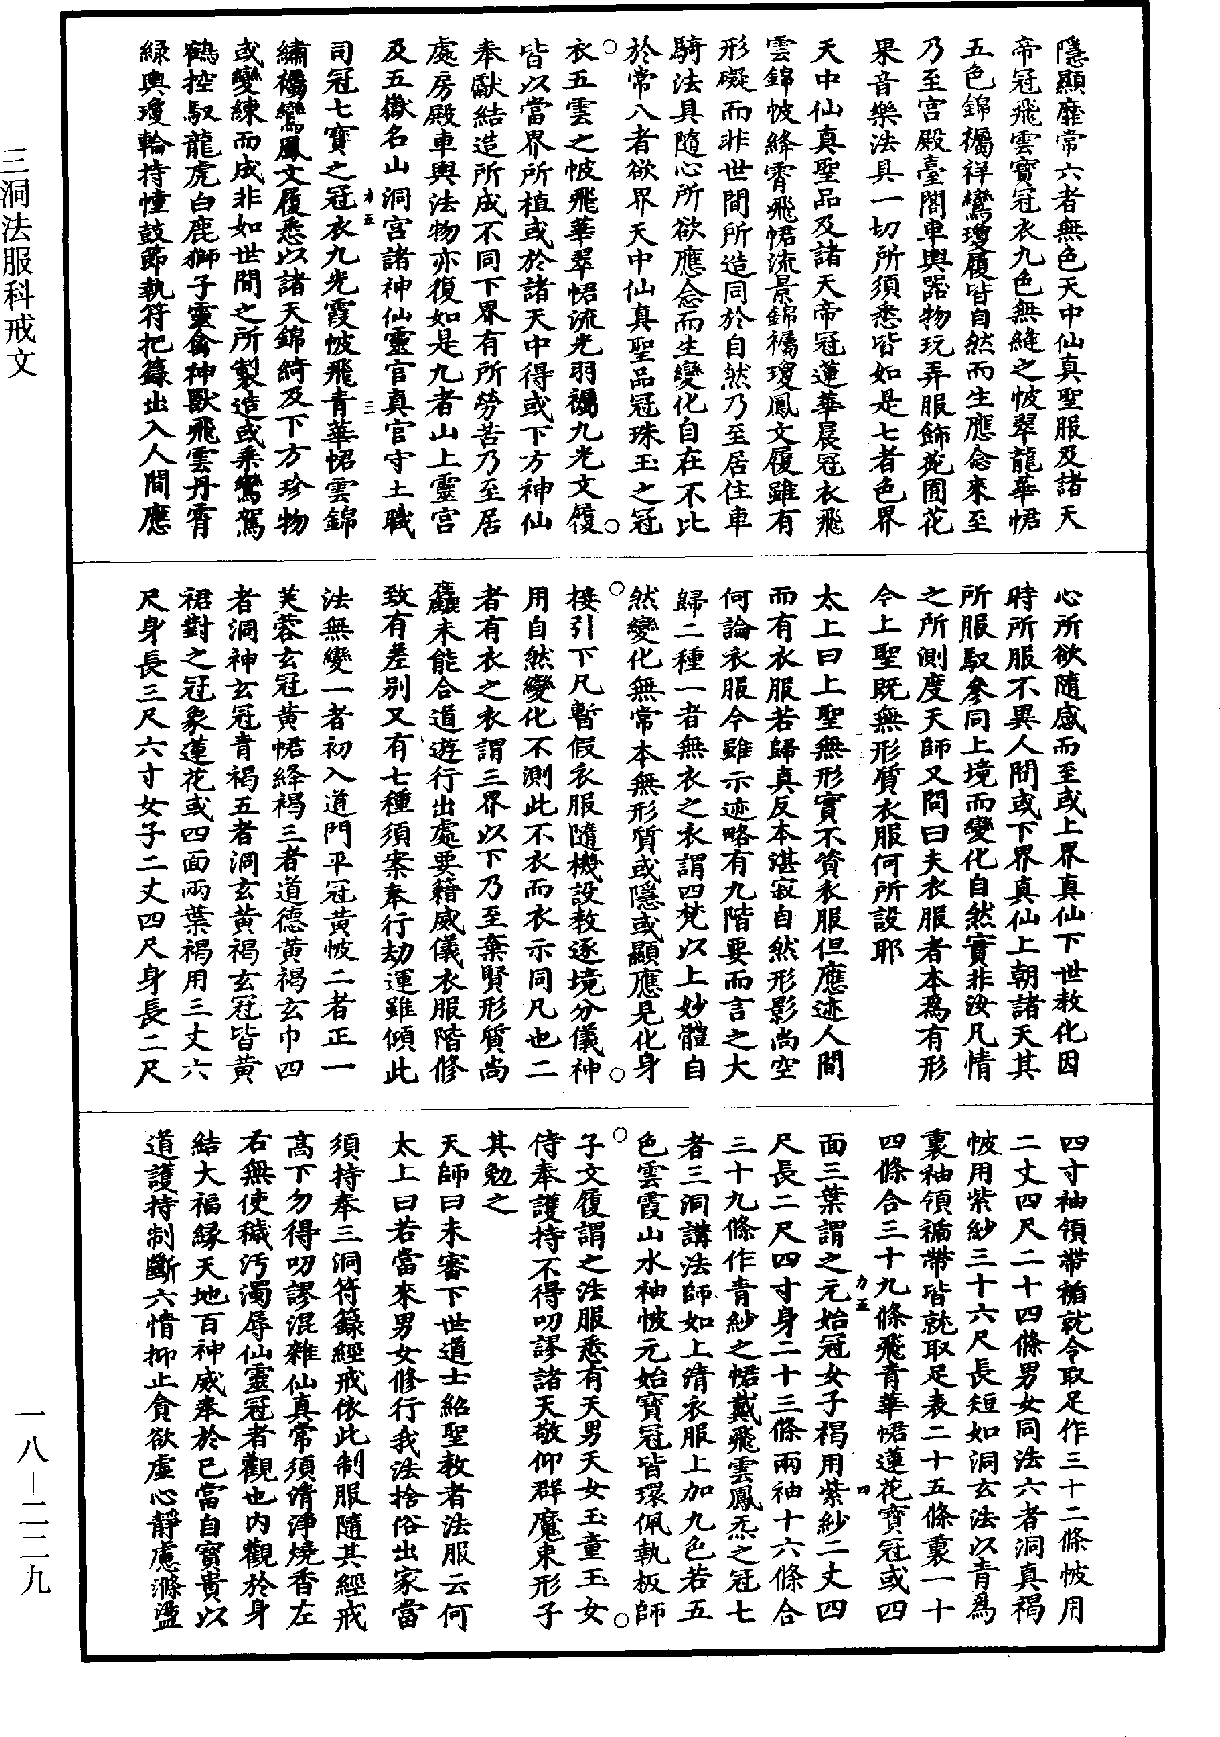 隱顯靡常六者無色天中仙真聖服及諸天
帝冠飛雲寶冠衣九色無縫之帔翠龍華帬
五色錦襡祥鸞瓊履皆自然而生應念來至
乃至宮殿臺閣車輿器物玩弄服飾苑囿花
果音樂法具一切所須悉皆如是七者色界
天中仙真聖品及諸天帝冠蓮華晨冠衣飛
雲錦帔絳霄飛帬流景錦襡瓊鳳文履雖有
形礙而非世間所造同於自然乃至居住車
騎法具隨心所欲應念而生變化自在不比
於常八者欲界天中仙真聖品冠珠玉之冠
衣五雲之帔飛華翠帬流光羽襡九光文履
皆以當界所植或於諸天中得或下方神仙
奉獻結造所成不同下界有所勞苦乃至居
處房殿車輿法物亦復如是九者山上靈宮
及五嶽名山洞宮諸神仙靈官真官守土職
司冠七寶之冠衣九光霞帔飛青華帬雲錦
繡襡鸞鳳文履悉以諸天錦綺及下方珍物
或變練而成非如世間之所製造或乘鸞駕
鶴控馭龍虎白鹿獅子靈禽神獸飛雲丹霄
綠輿瓊輪持幢鼓節執符把籙出入人間應
心所欲隨感而至或上界真仙下世教化因
時所服不異人間或下界真仙上朝諸天其
所服馭參同上境而變化自然實非汝凡情
之所測度天師又問曰夫衣服者本為有形
今上聖既無形質衣服何所設耶
太上曰上聖無形實不資衣服但應迹人間
而有衣服若歸真反本湛寂自然形影尚空
何論衣服今雖示迹略有九階要而言之大
歸二種一者無衣之衣謂四梵以上妙體自
然變化無常本無形質或隱或顯應見化身
接引下凡暫假衣服隨機設教逐境分儀神
用自然變化不測此不衣而衣示同凡也二
者有衣之衣謂三界以下乃至棄賢形質尚
麤未能合道遊行出處要藉威儀衣服階修
致有差別又有七種須案奉行劫運雖傾此
法無變一者初入道門平冠黃帔二者正一
芙蓉玄冠黃帬絳褐三者道德黃褐玄巾四
者洞神玄冠青褐五者洞玄黃褐玄冠皆黃
裙對之冠象蓮花或四面兩葉褐用三丈六
尺身長三尺六寸女子二丈四尺身長二尺
四寸袖領帶䘎就令取足作三十二條帔用
二丈四尺二十四條男女同法六者洞真褐
帔用紫紗三十六尺長短如洞玄法以青為
裏袖領䘎帶皆就取足表二十五條裏一十
四條合三十九條飛青華帬蓮花寶冠或四
面三葉謂之元始冠女子褐用紫紗二丈四
尺長二尺四寸身二十三條兩袖十六條合
三十九條作青紗之帬戴飛雲鳳炁之冠七
者三洞講法師如上清衣服上加九色若五
色雲霞山水袖帔元始寶冠皆環佩執板師
子文履謂之法服悉有天男天女玉童玉女
侍奉護持不得叨謬諸天敬仰群魔束形子
其勉之
天師曰未審下世道士紹聖教者法服云何
太上曰若當來男女修行我法捨俗出家當
須持奉三洞符籙經戒依此制服隨其經戒
高下勿得叨謬混雜仙真常須清淨燒香左
右無使穢污濁辱仙靈冠者觀也內觀於身
結大福緣天地百神咸奉於己當自寶貴以
道護持制斷六情抑止貪欲虛心靜慮滌盪
三洞法服科戒文
一八－二二九